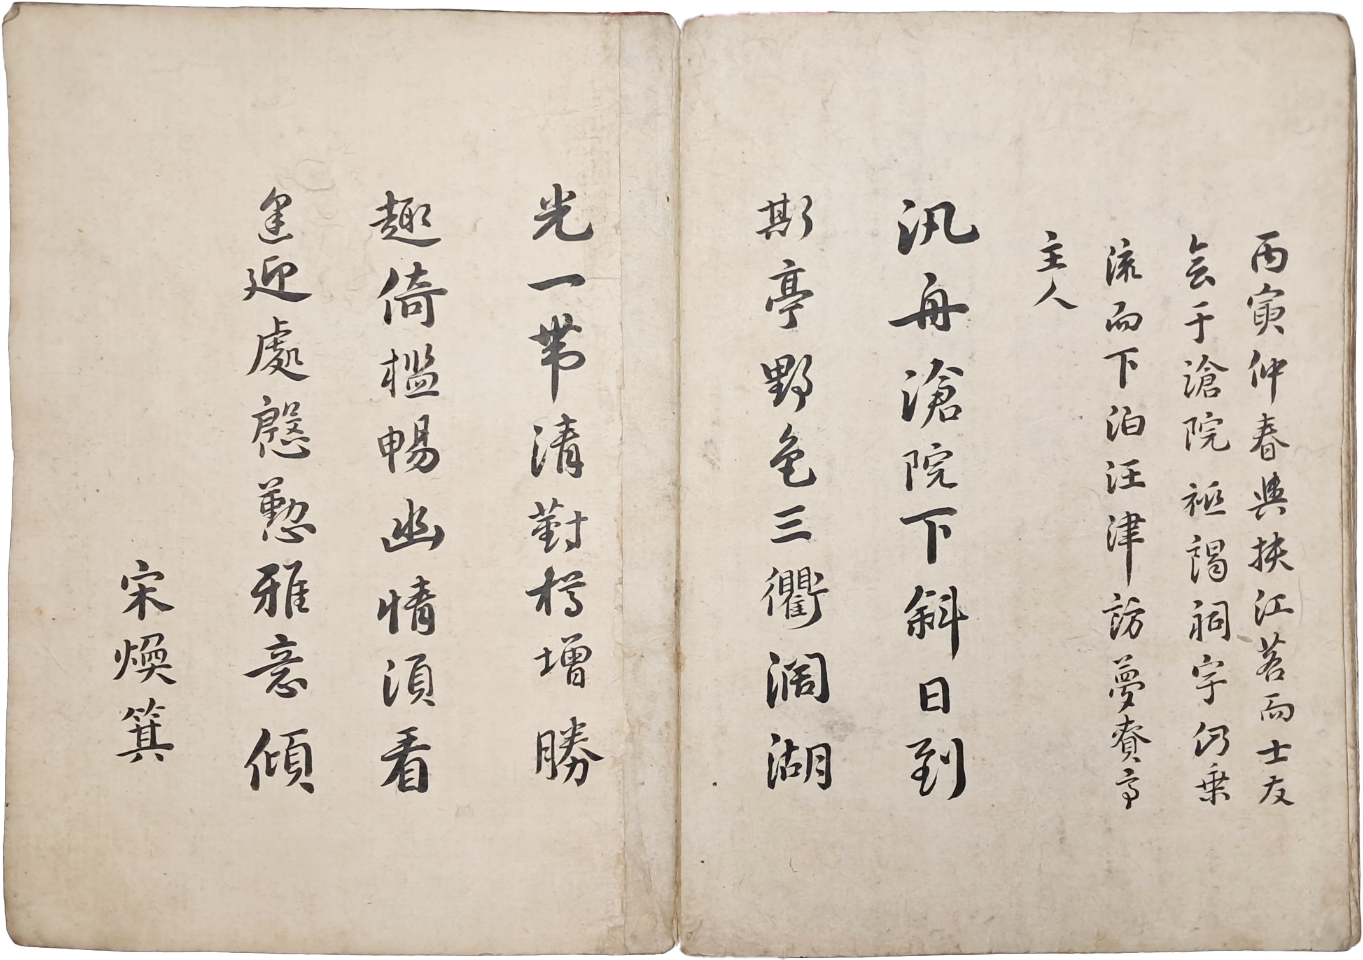 丙寅仲春與挾江若而士友
会于滄院祗謁祠宇仍乗
流而下泊汪津訪夢賚亭
主人
汎舟滄院下斜日到
斯亭野色三衢濶湖
光一帶清對樽增勝
趣倚檻暢幽情須看
逢迎處慇懃雅意傾
宋煥箕